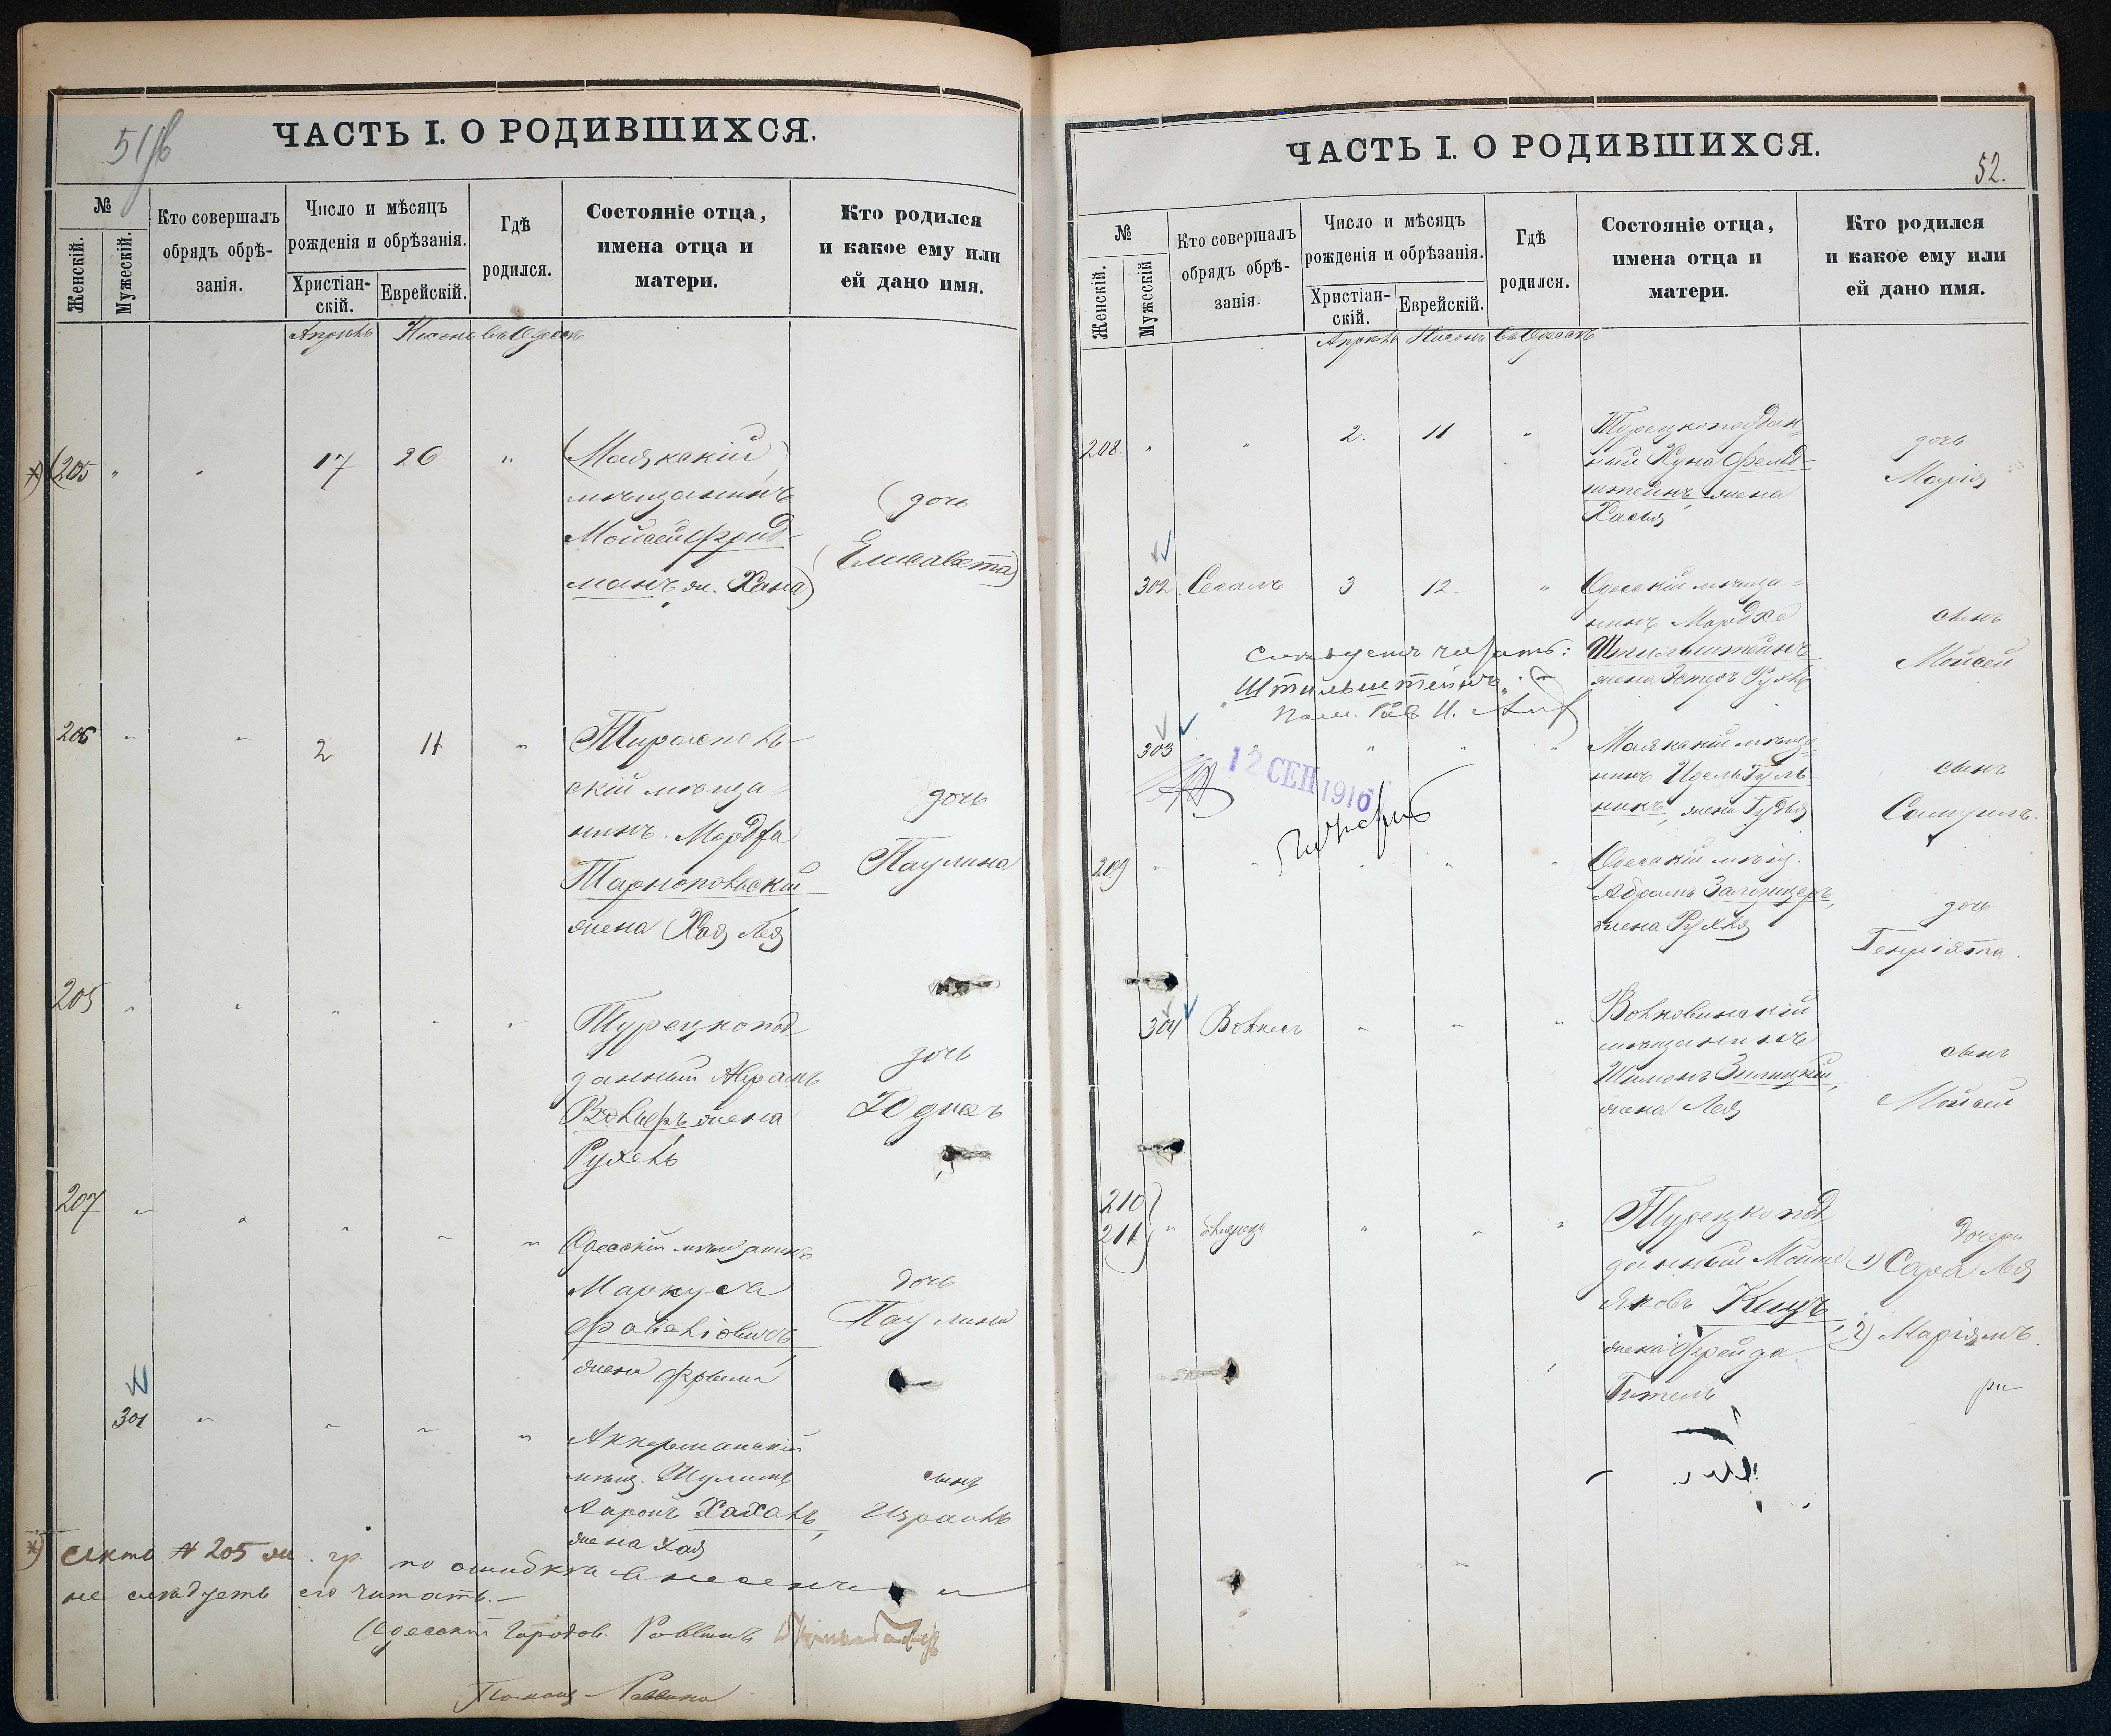 51/б
ЧАСТЬ I. О РОДИВШИХСЯ.
№
Женскій.
Мужескій.
Кто совершалъ
обрядъ обрѣ-
занія.
Число и мѣсяцъ
рожденія и обрѣзанія.
Христіан-
скій.
Еврейскій.
Гдѣ
родился.
Состояніе отца,
имена отца и
матери.
Кто родился
и какое ему или
ей дано имя.
Апрѣль Нисонъ въ Одессѣ
*) (205 " " 17 26 "
(Маякскій
мѣщанинъ
Мойсей Фрид-
манъ ж. Хана)
(дочь
Елисавета)
206 " " 2 11 "
Тирасполь-
скій мѣща-
нинъ Мордха
Тарнопольскій
жена Хая Лея
дочь
Паулина
205 " " " " "
Турецкопод
данный Абрамъ
жена
Рухель
дочь
207 " " " " "
Одесскій мѣщанинъ
Маркусъ
жена
дочь
Паулина
301 " " " "
Аккерманскій
мѣщ. Шулимъ
Ааронъ Хаханъ,
жена Хая
сынъ
Израиль
*) Актъ № 205 ж. гр. по ошибкѣ внесенъ и
не слѣдуетъ его читать.-
Одесскій Городов. Раввинъ
Помощ. Раввина
ЧАСТЬ I. О РОДИВШИХСЯ.
52.
№
Женскій.
Мужескій
Кто совершалъ
обрядъ обрѣ-
занія.
Число и мѣсяцъ
рожденія и обрѣзанія.
Христіан-
скій.
Еврейскій.
Гдѣ
родился.
Состояніе отца,
имена отца и
матери.
Кто родился
и какое ему или
ей дано имя.
Апрѣль Нисонъ въ Одессѣ
208. " " 2. 11 "
Турецкоподдан-
ный Хуна Фельд-
штейнъ, жена
Хасья
дочь
Марія
302 Сегалъ 3 12 "
Одесскій мѣща-
нинъ Мордхе
Штильштейнъ
жена Эстеръ Рухль
сынъ
Мойсей
слѣдуетъ читать:
"Штильштейнъ".
Пом. Рав.
303 " " " "
Маякскій мѣща-
нинъ Идель Гуль-
никъ, жена Гудья
сынъ
Самуилъ.
12 СЕН 1916
209 " " " " "
Одесскій мѣщ.
Абрамъ Зальцицеръ,
жена Рухля
дочь
Генріэта.
304 " " "
мѣщанинъ
Шимонъ
жена Лея
сынъ
Мойсей
210
211 } " близнецы " " "
Турецкопод
данный Мойше
Яковъ Кецъ
жена Фрейда
Гитель
дочери
1) Сара Лея
2) Маріямъ.